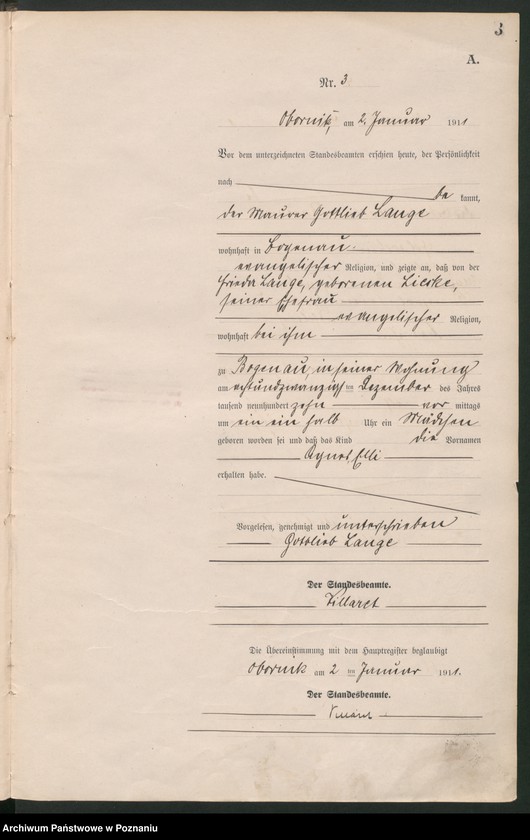 3
A.
Nr. 3
Obornik, am 2. Januar 1911
Vor dem unterzeichneten Standesbeamten erschien heute, der Persönlichkeit
nach be kannt,
der Maurer Gottlieb Lange
wohnhaft in Bogenau
evangelischer Religion, und zeigte an, daß von der
Frieda Lange, geborenen Lieske,
seiner Ehefrau
evangelischer Religion,
wohnhaft bei ihm
zu Bogenau, in seiner Wohnung
am achtundzwanzigsten Dezember des Jahres
tausend neunhundert zehn vor mittags
um ein ein halb Uhr ein Mädchen
geboren worden sei und daß das Kind die Vornamen
Agnes Elli
erhalten habe.
Vorgelesen, genehmigt und unterschrieben
Gottlieb Lange
Der Standesbeamte.
Die Übereinstimmung mit dem Hauptregister beglaubigt
Obornik am 2 ten Januar 1911.
Der Standesbeamte.
Archiwum Państwowe w Poznaniu